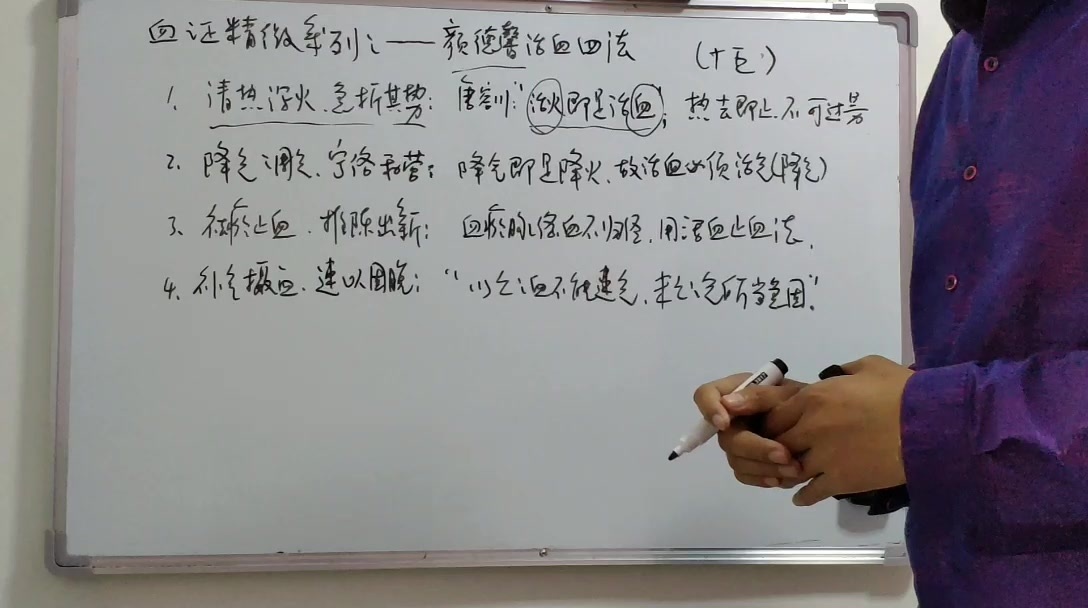 血证精微系列之——颜德馨治血四法 (十七)
1. 清热泻火、急折其势：唐容川："治火即是治血"；热去即止、不可过量
2. 降气调气、宁络和营：降气即是降火、故治血必须治气(降气)
3. 祛瘀止血、推陈出新：血瘀脉络血不归经、用活血止血法.
4. 补气摄血、速以固脱："